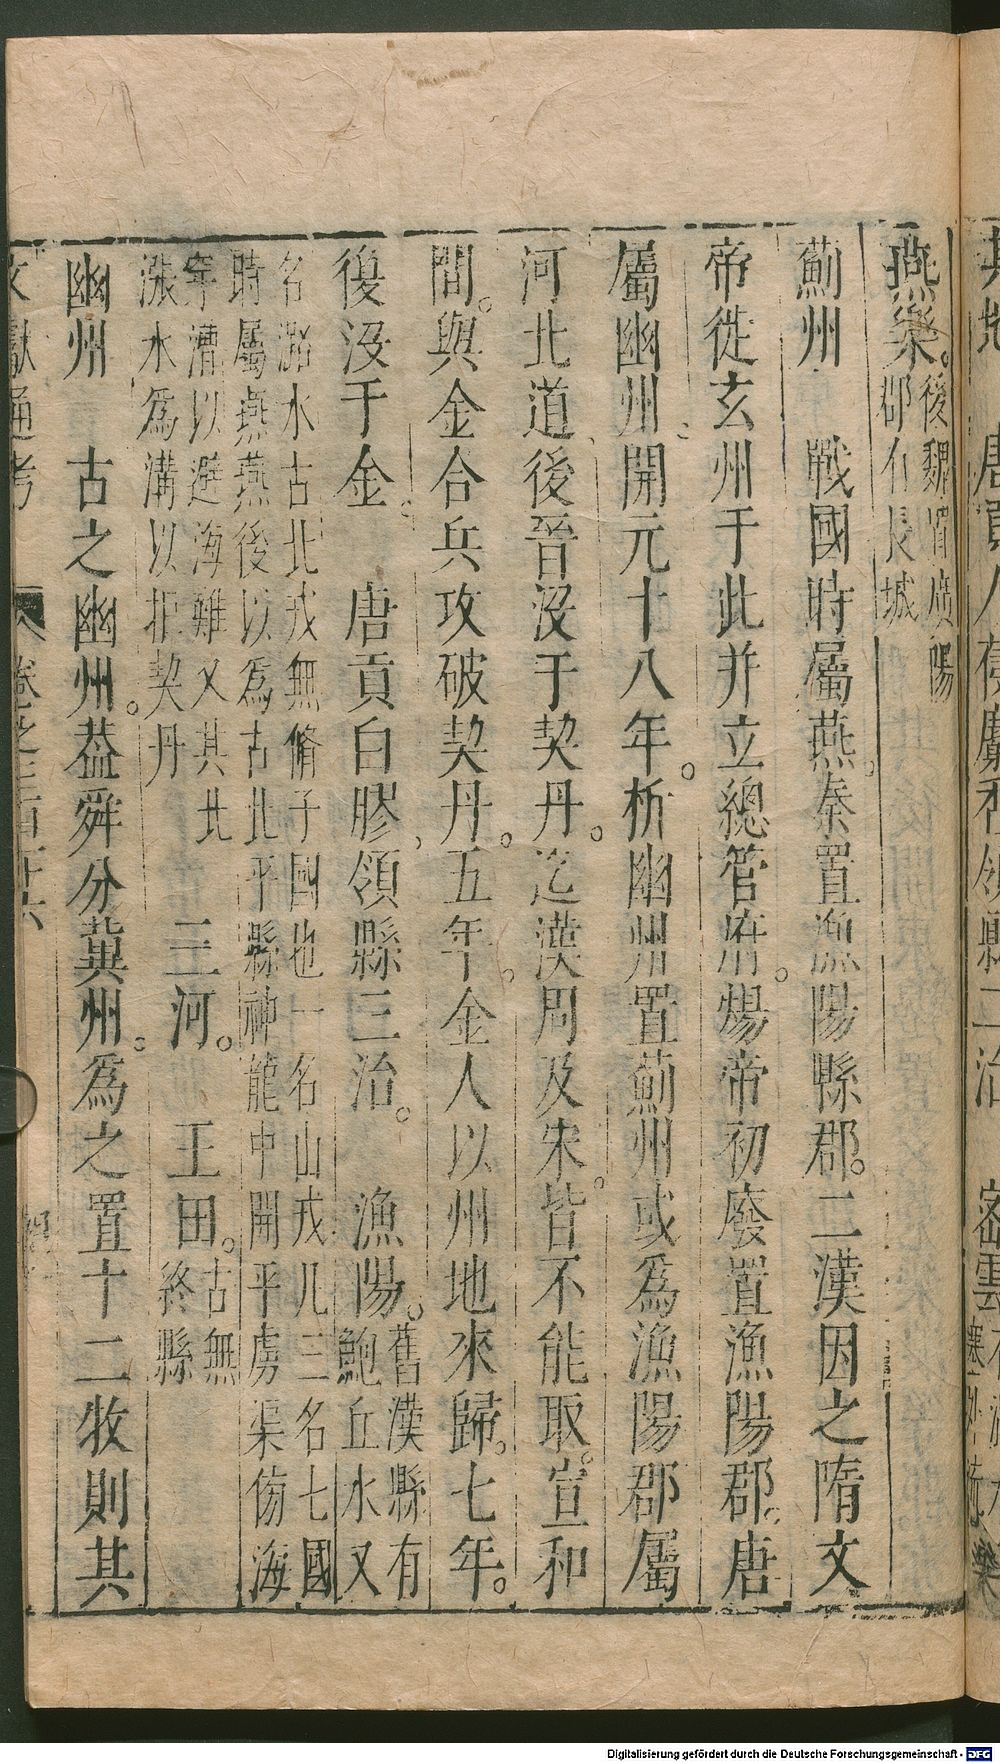 燕樂。後魏置廣陽郡有長城
薊州 戰國時屬燕。秦置漁陽縣郡。二漢因之隋文
帝徙玄州于此并立總管府。煬帝初廢置漁陽郡。唐
屬幽州、開元十八年。析幽州置薊州或為漁陽郡屬
河北道、後晉沒于契丹。迄漢周及宋。皆不能取。宣和
間。與金合兵攻破契丹。五年。金人以州地來歸。七年。
復沒于金。 唐貢白膠、領縣三治。 漁陽。舊漢縣有鮑丘水又
名潞水古北戎無脩子國也一名山戎凡三名七國
時屬燕燕後以為古北平縣神龍中開平虜渠傍海
穿漕以避海難又其北
漲水為溝以拒契丹 三河。 玉田。古無終縣
幽州 古之幽州。葢舜分冀州。為之置十二牧則其
文獻通考 卷之三百十六
Digitalisierung gefördert durch die Deutsche Forschungsgemeinschaft - DFG